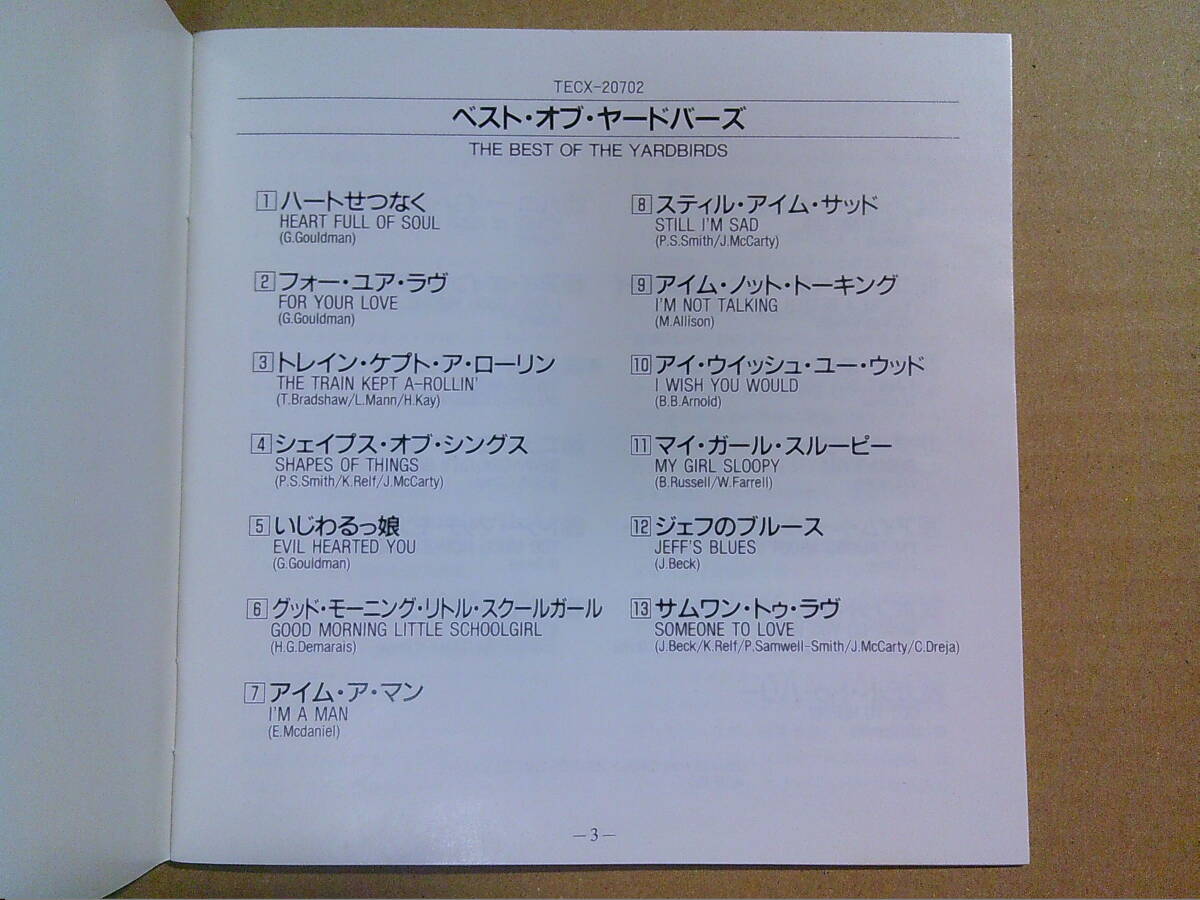 TECX-20702
ベスト・オブ・ヤードバーズ
THE BEST OF THE YARDBIRDS
1 ハートせつなく
HEART FULL OF SOUL
(G.Gouldman)
2 フォー・ユア・ラヴ
FOR YOUR LOVE
(G.Gouldman)
3 トレイン・ケプト・ア・ローリン
THE TRAIN KEPT A-ROLLIN'
(T.Bradshaw/L.Mann/H.Kay)
4 シェイプス・オブ・シングス
SHAPES OF THINGS
(P.S.Smith/K.Relf/J.McCarty)
5 いじわるっ娘
EVIL HEARTED YOU
(G.Gouldman)
6 グッド・モーニング・リトル・スクールガール
GOOD MORNING LITTLE SCHOOLGIRL
(H.G.Demarais)
7 アイム・ア・マン
I'M A MAN
(E.Mcdaniel)
8 スティル・アイム・サッド
STILL I'M SAD
(P.S.Smith/J.McCarty)
9 アイム・ノット・トーキング
I'M NOT TALKING
(M.Allison)
10 アイ・ウイッシュ・ユー・ウッド
I WISH YOU WOULD
(B.B.Arnold)
11 マイ・ガール・スルーピー
MY GIRL SLOOPY
(B.Russell/W.Farrell)
12 ジェフのブルース
JEFF'S BLUES
(J.Beck)
13 サムワン・トゥ・ラヴ
SOMEONE TO LOVE
(J.Beck/K.Relf/P.Samwell-Smith/J.McCarty/C.Dreja)
—3—